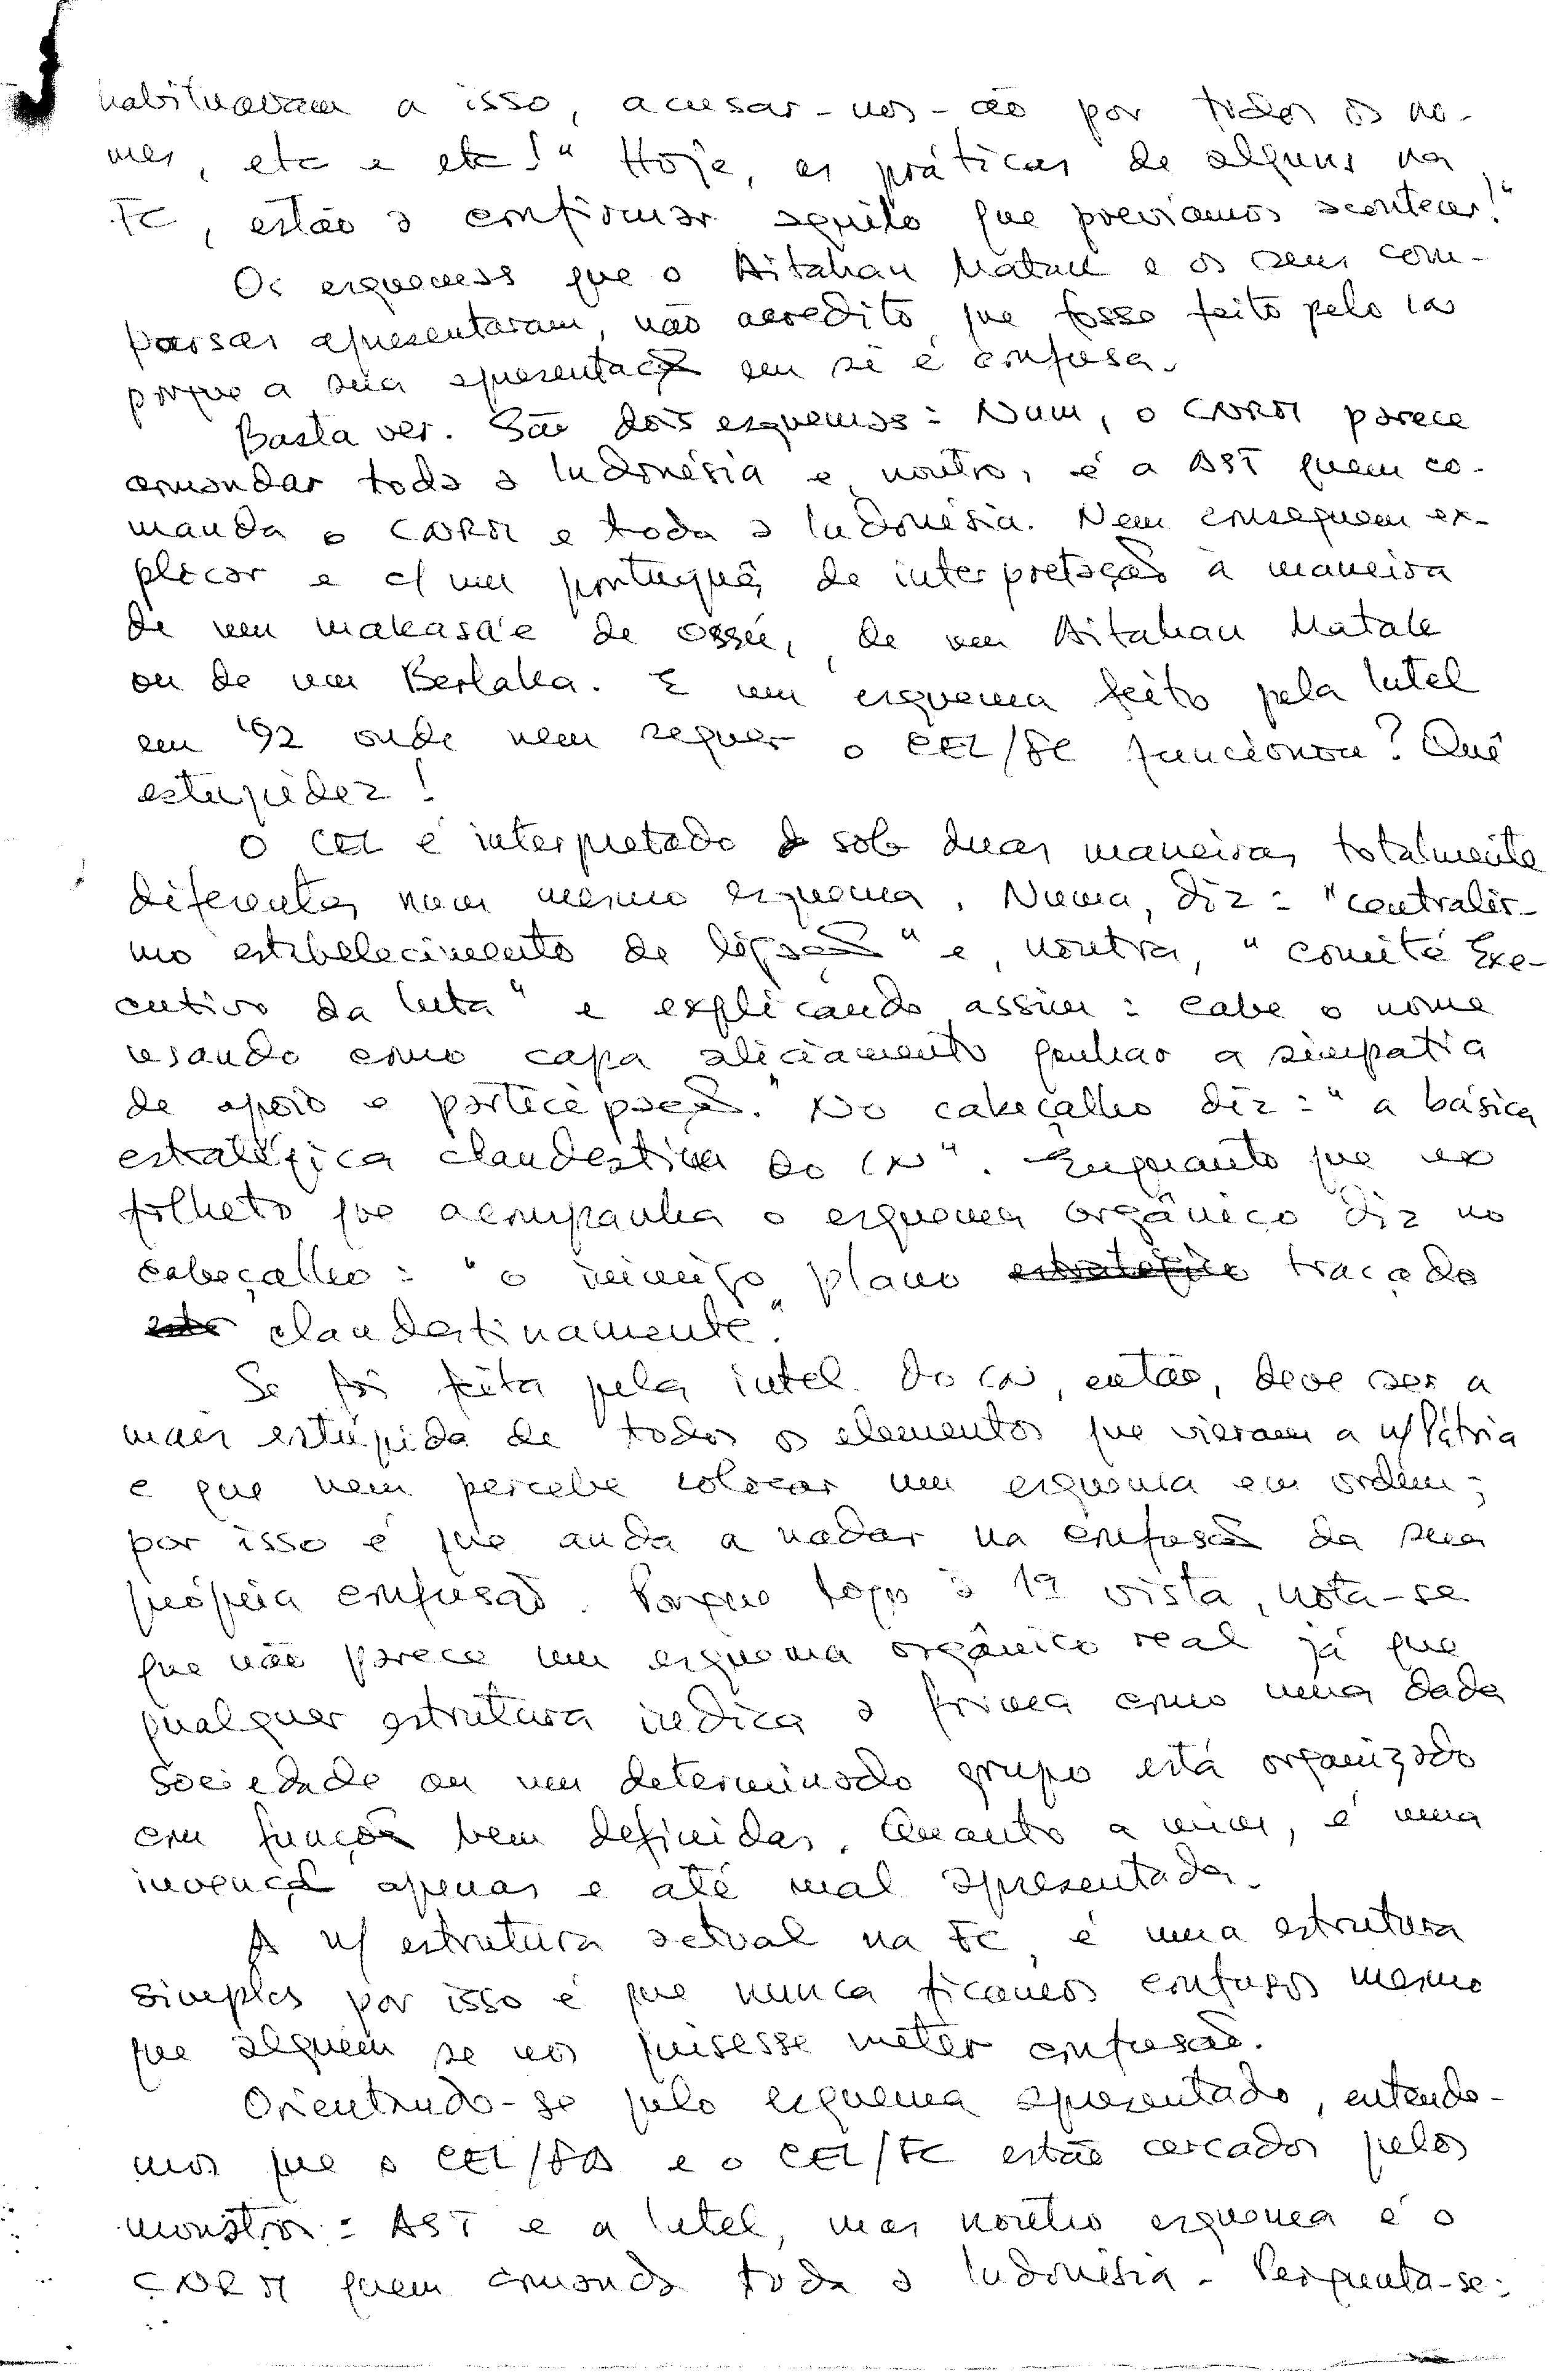 habituavam a isso, acusar-nos-ão por todos os no-
mes, etc e etc!" Hoje, as práticas de alguns na
FC, estão a confirmar aquilo que previamos acontecer!"
Os esquemas que o Aitahan Matak e os seus com-
parsas apresentaram, não acredito que fosse feito pelo in
porque a sua apresentação em si é confusa.
Basta ver. São dois esquemas: Num, o CNRM parece
comandar toda a Indonésia e noutro, é a AST quem co-
manda o CNRM e toda a Indonésia. Nem conseguem ex-
plicar e c/ um português de interpretação à maneira
de um makasa'e de Ossú, de um Aitahan Matak
ou de um Berlaka. E um esquema feito pela Intel
em '92 onde nem sequer o CEL/FC funcionou? Quê
estupidez!
O CEL é interpretado sob duas maneiras totalmente
diferentes num mesmo esquema. Numa, diz: "centralis-
mo estabelecimento de ligação" e, noutra, "comité Exe-
cutivo da luta" e explicando assim: cabe o nome
usando como capa aliciamento ganhar a simpatia
de apoio e participação." No cabeçalho diz: "a básica
estratégica clandestina do in". Enquanto que no
folheto que acompanha o esquema orgânico diz no
cabeçalho: "o inimigo plano estratégico traçado
clandestinamente."
Se foi feita pela intel. do in, então, deve ser a
mais estúpida de todos os elementos que vieram a n/ Pátria
e que nem percebe colocar um esquema em ordem;
por isso é que anda a nadar na confusão da sua
própria confusão. Porque logo à 1ª vista, nota-se
que não parece um esquema orgânico real já que
qualquer estrutura indica a forma como uma dada
sociedade ou um determinado grupo está organizado
em função bem definidas. Quanto a mim, é uma
invenção apenas e até mal apresentada.
A n/ estrutura actual na FC, é uma estrutura
simples por isso é que nunca ficamos confusos mesmo
que alguém se nos quisesse meter confusão.
Orientando-se pelo esquema apresentado, entende-
mos que o CEL/FA e o CEL/FC estão cercados pelos
monstros: AST e a Intel, mas noutro esquema é o
CNRM quem comanda toda a Indonésia. Pergunta-se: